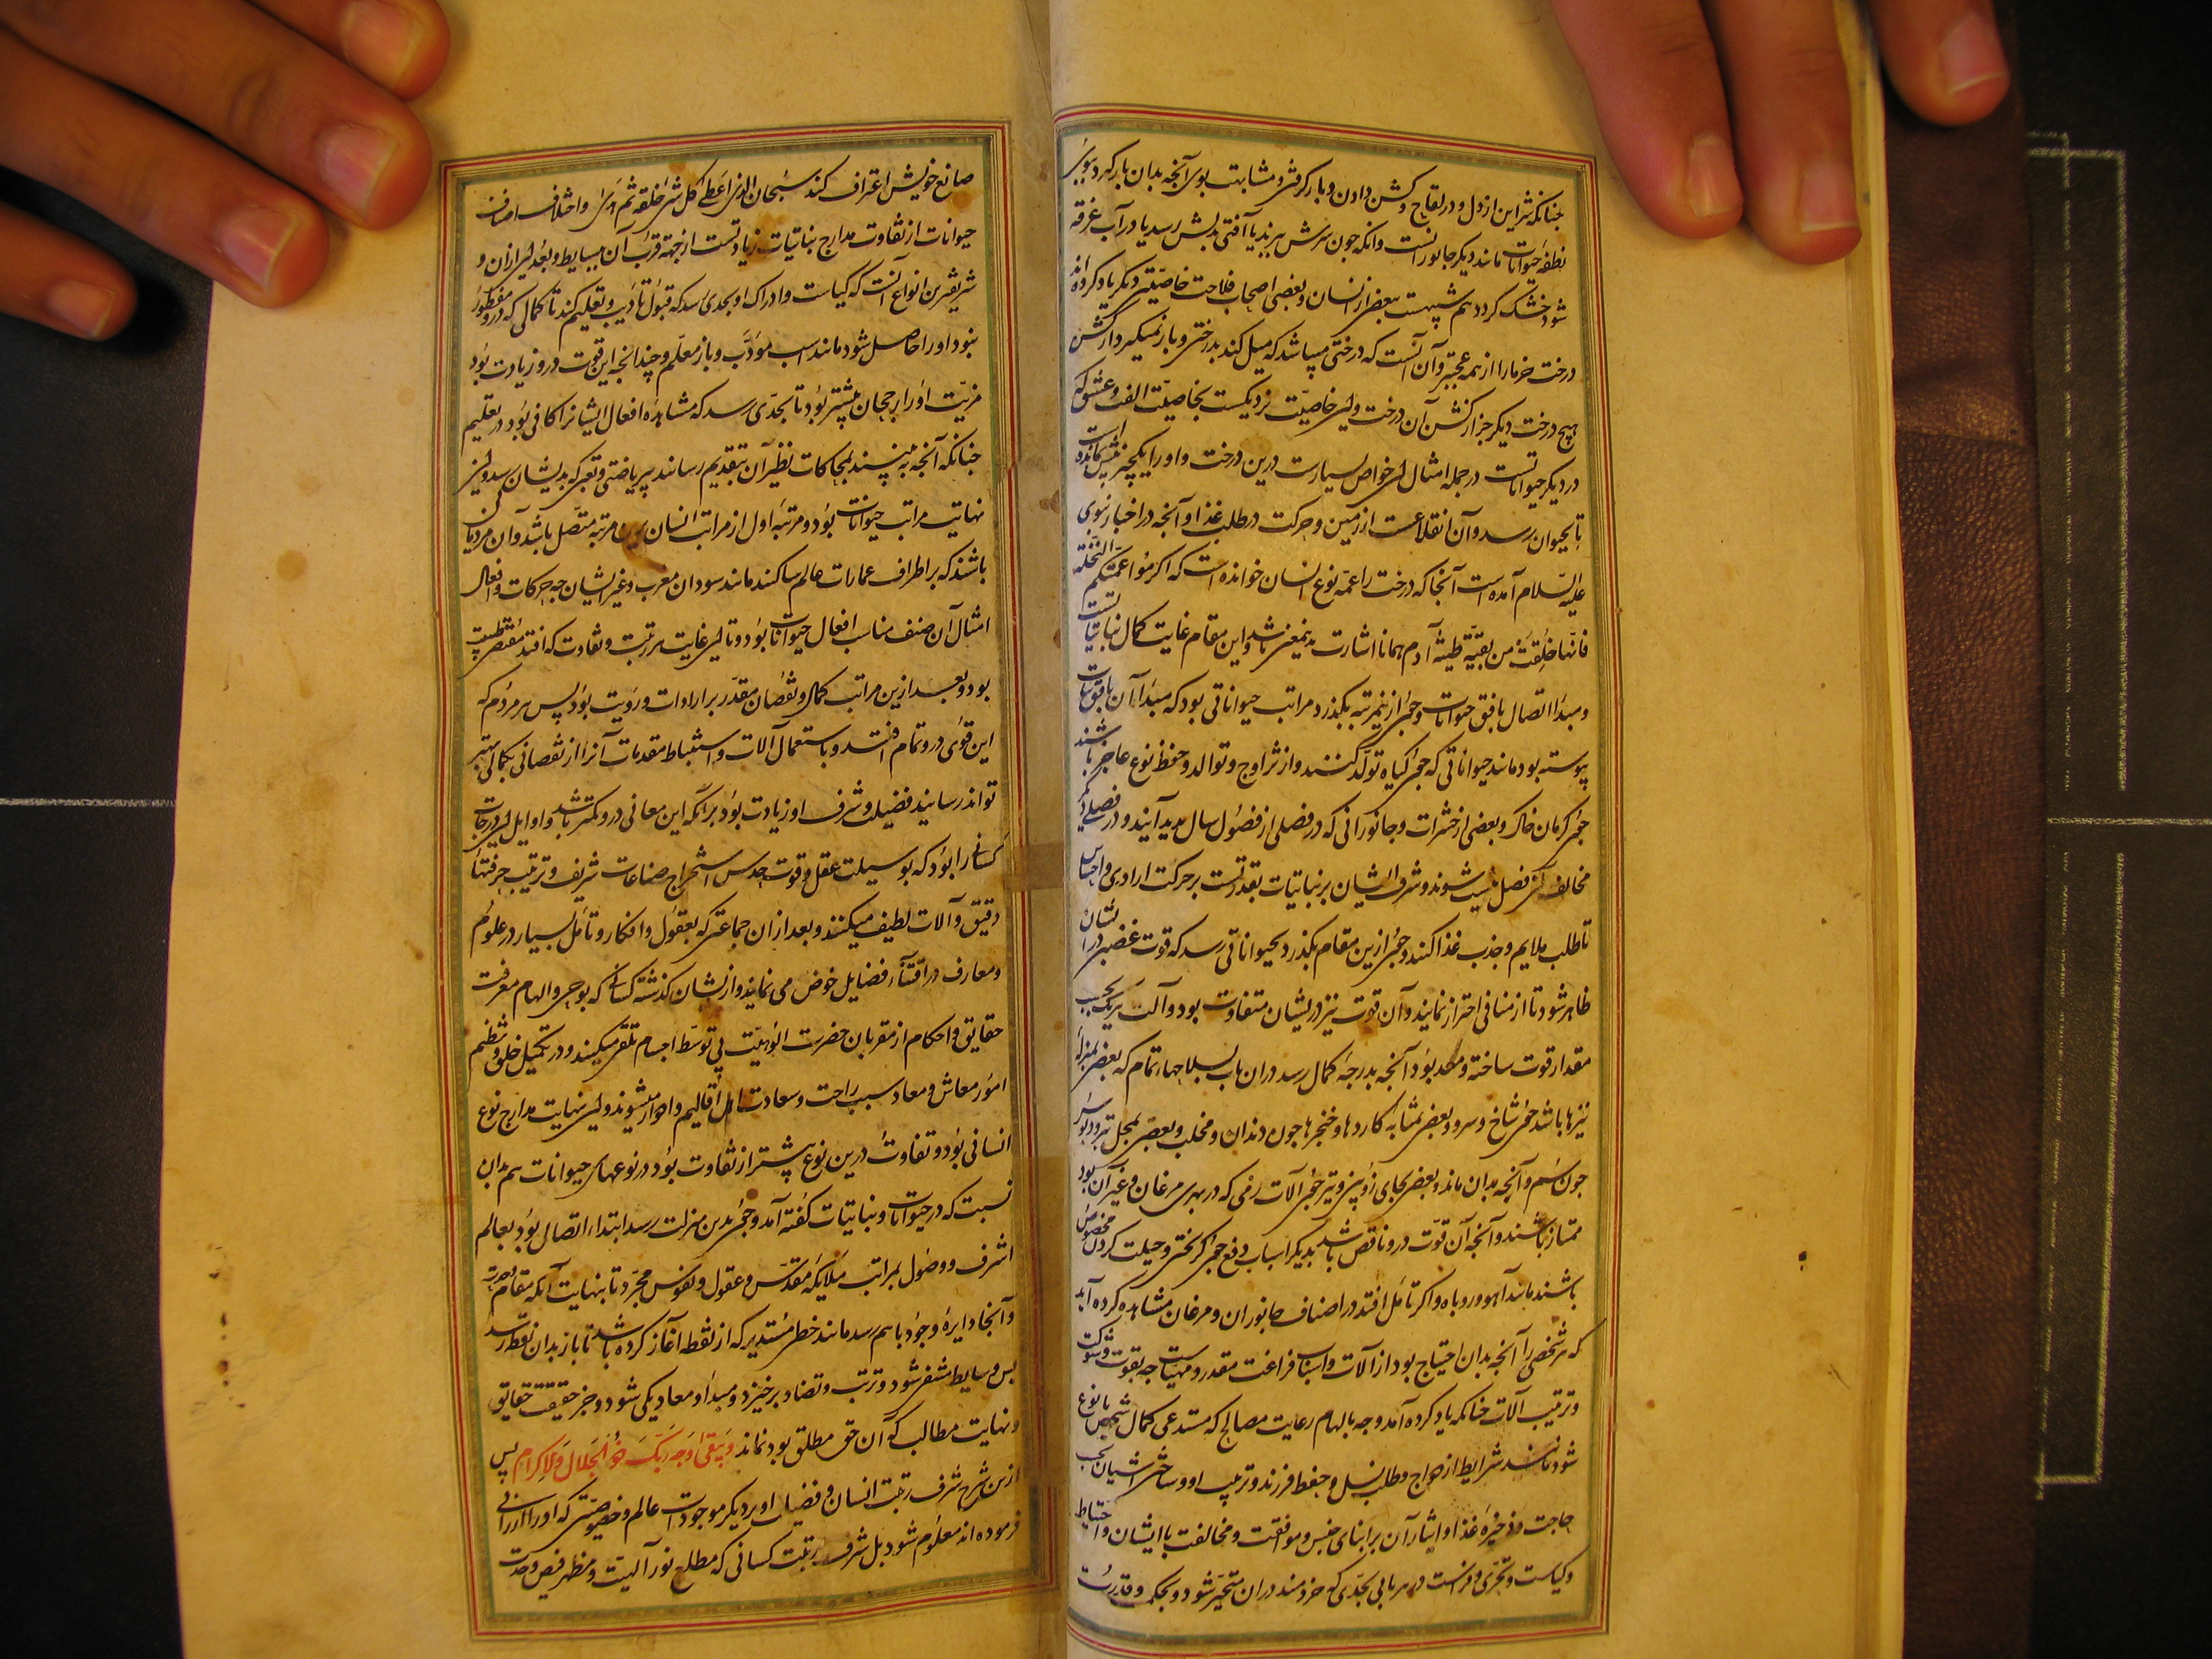 چنانکه شراین از دل و در لقاح و کشن دادن و بار گرفتن و مشابهت بوی آنچه بدان بار گیرد ببوی
نطفه حیوانات مانند دیگر جانورانست و آنکه چون سرش ببرند یا آفتی بدلش رسد یا در آب غرقه
شود خشک گردد هم شبیهست ببعضی از انسان و بعضی اصحاب فلاحت خاصیتی دیگر یاد کرده‌اند
درخت خرما را از همه عجیبتر و آن آنست که درختی میباشد که میل کند بدرختی و بار نمیگیرد از کشن
هیچ درخت دیگر جز از کشن آن درخت و این خاصیت نزدیکست بخاصیت الفت و عشق که
در دیگر حیواناتست در جمله امثال این خواص بسیارست درین درخت و او را یک چیز بیش نمانده است
تا بحیوان رسد و آن انقلاعست از زمین و حرکت در طلب غذا و آنچه در اخبار نبوی
علیه السلام آمده است آنجا که درخت را عمه نوع انسان خوانده است که اکرموا عمتکم النخلة
فانها خلقت من بقیة طینة آدم همانا اشارت بدینمعنی باشد و این مقام غایت کمال نباتاتست
و مبدأ اتصال بافق حیوانات و چون ازینمرتبه بگذرد مراتب حیواناتی بود که مبدأ آن بافق نبات
پیوسته بود مانند حیواناتی که چون گیاه تولد کنند و از تزاوج و توالد و حفظ نوع عاجز باشند
چون کرمان خاک و بعضی از حشرات و جانورانی که در فصلی از فصول سال پدید آیند و در فصلی دیگر
مخالف آن فصل نیست شوند و شرف ایشان بر نباتات بقدر قدرتست بر حرکت ارادی و احساس
تا طلب ملایم و جذب غذا کنند و چون ازین مقام بگذرد بحیواناتی رسد که قوت غضبی در ایشان
ظاهر شود تا از منافی احتراز نمایند و آن قوت نیز در ایشان متفاوت بود و آلت هر یک بحسب
مقدار قوت ساخته و معد بود آنچه بدرجه کمال رسد در آن باب بسلاحها تمام که بعضی بمنزله
نیزها باشد چون شاخ و سرو و بعضی بمثابه کاردها و خنجرها چون دندان و مخلب و بعضی بمحل تبر و دبوس
چون سم و آنچه بدان ماند و بعضی بجای زوبین و تیر چون آلات رمی که در بعضی مرغان و غیر آن بود
ممتاز باشند و آنچه آن قوت درو ناقص باشد بدیگر اسباب دفع چون گریختن و حیلت کردن مخصوص
باشند مانند آهو و روباه و اگر تأمل افتد در اصناف جانوران و مرغان مشاهده کرده آید
که هر شخصی را آنچه بدان احتیاج بود از آلات و اسباب فراغت مقدر و مهیاست چه بقوت و شوکت
و ترتیب آلات چنانکه یاد کرده آمد و چه بالهام رعایت مصالح که مستدعی کمال شخص یا نوع
شود مانند شرایط ازدواج و طلب نسل و حفظ فرزند و تربیت او و ساختن آشیان بحسب
حاجت و ذخیره غذا و ایثار آن بر ابنای جنس و موافقت و مخالفت با ایشان و احتیاط
و کیاست و تحری و فراست در هر بابی بحدی که خردمند در آن متحیر شود و بحکمت و قدرت
صانع خویش اعتراف کند سبحان الذی اعطی کل شئ خلقه ثم هدی و اختلاف اصناف
حیوانات از تفاوت مدارج نباتیات زیادتست از جهة قرب آن ببسایط و بعد این ازان و
شریفترین انواع آنست که کیاست و ادراک او بحدی رسد که قبول تأدیب و تعلیم کند تا کمالی که درو مفطور
نبود او را حاصل شود مانند اسب مؤدب و باز معلم و چندانچه این قوت درو زیادت بود
مزیت او را رجحان بیشتر بود تا بحدی رسد که مشاهده افعال ایشانرا کافی بود در تعلیم
چنانکه آنچه ببینند بمحاکات نظیر آن بتقدیم رسانند بی ریاضتی و تعبی که بدیشان رسد و این
نهایت مراتب حیوانات بود و مرتبه اول از مراتب انسان بدین مرتبه متصل باشد و آن مردمان
باشند که بر اطراف عمارات عالم ساکنند مانند سودان مغرب و غیر ایشان چه حرکات و افعال
امثال آن صنف مناسب افعال حیوانات بود و تا این غایت هر ترتیب و تفاوت که افتد مقتضی طبیعت
بود و بعد ازین مراتب کمال و نقصان مقدر بر ارادات و رویت بود پس هر مردم که
این قوی درو تمام افتد و باستعمال آلات و استنباط مقدمات آنرا از نقصانی بکمالی بهتر
تواند رسانید فضیلت و شرف او زیادت بود بر آنکه این معانی درو کمتر باشد و اوایل این درجات
کسانی را بود که بوسیلت عقل و قوت حدس استخراج صناعات شریف و ترتیب حرفتهاء
دقیق و آلات لطیف میکنند و بعد ازان جماعتی که بعقول و افکار و تأمل بسیار در علوم
و معارف در اقتناء فضایل خوض می نمایند و از ایشان گذشته کسانی که بوحی و الهام معرفت
حقایق و احکام از مقربان حضرت الوهیت بی توسط اجسام تلقی میکنند و در تکمیل خلق و نظم
امور معاش و معاد سبب راحت و سعادت اهل اقالیم و ادوار میشوند و این نهایت مدارج نوع
انسانی بود و تفاوت درین نوع بیشتر از تفاوت بود در نوعهای حیوانات هم بدان
نسبت که در حیوانات و نباتیات گفته آمد و چون بدین منزلت رسد ابتداء اتصال بود بعالم
اشرف و وصول بمراتب ملایکه مقدس و عقول و نفوس مجرد تا بنهایت آنکه مقام وحدت
و آنجا دایره وجود با هم رسد مانند خطی مستدیر که از نقطه آغاز کرده باشد تا باز بدان نقطه رسد
پس وسایط منتفی شود و ترتب و تضاد برخیزد و مبدأ و معاد یکی شود و جز حقیقت حقایق
و نهایت مطالب که آن حق مطلق بود نماند و یبقی وجه ربک ذو الجلال و الاکرام پس
ازین شرح شرف رتبت انسان و فضیلت او بر دیگر موجودات عالم و خصوصیتی که او را ارزانی
فرموده اند معلوم شود بل شرف رتبت کسانی که مطلع نور آلهیت و مظهر فیض وحدت